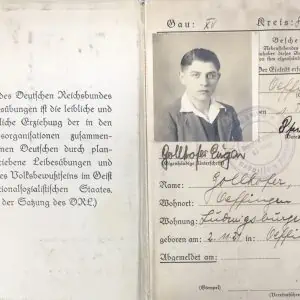 des Deutschen Reichsbundes
esübungen ist die leibliche und
liche Erziehung der in den
sorganisationen zusammen-
nen Deutschen durch plan-
riebene Leibesübungen und
es Volksbewußtseins im Geist
tionalsozialistischen Staates.
der Satzung des DRL)
Gau: XV Kreis:
Gesche
Der Eintritt er
Gollhofer Eugen
(Eigenhändige Unterschrift)
Name: Gollhofer,
Wohnort: Oeffingen
Wohnung: Ludwigsburge
geboren am: 2. 11. 21 in Oeffin
Abgemeldet am:
(Stempel)
(Vereinsführer